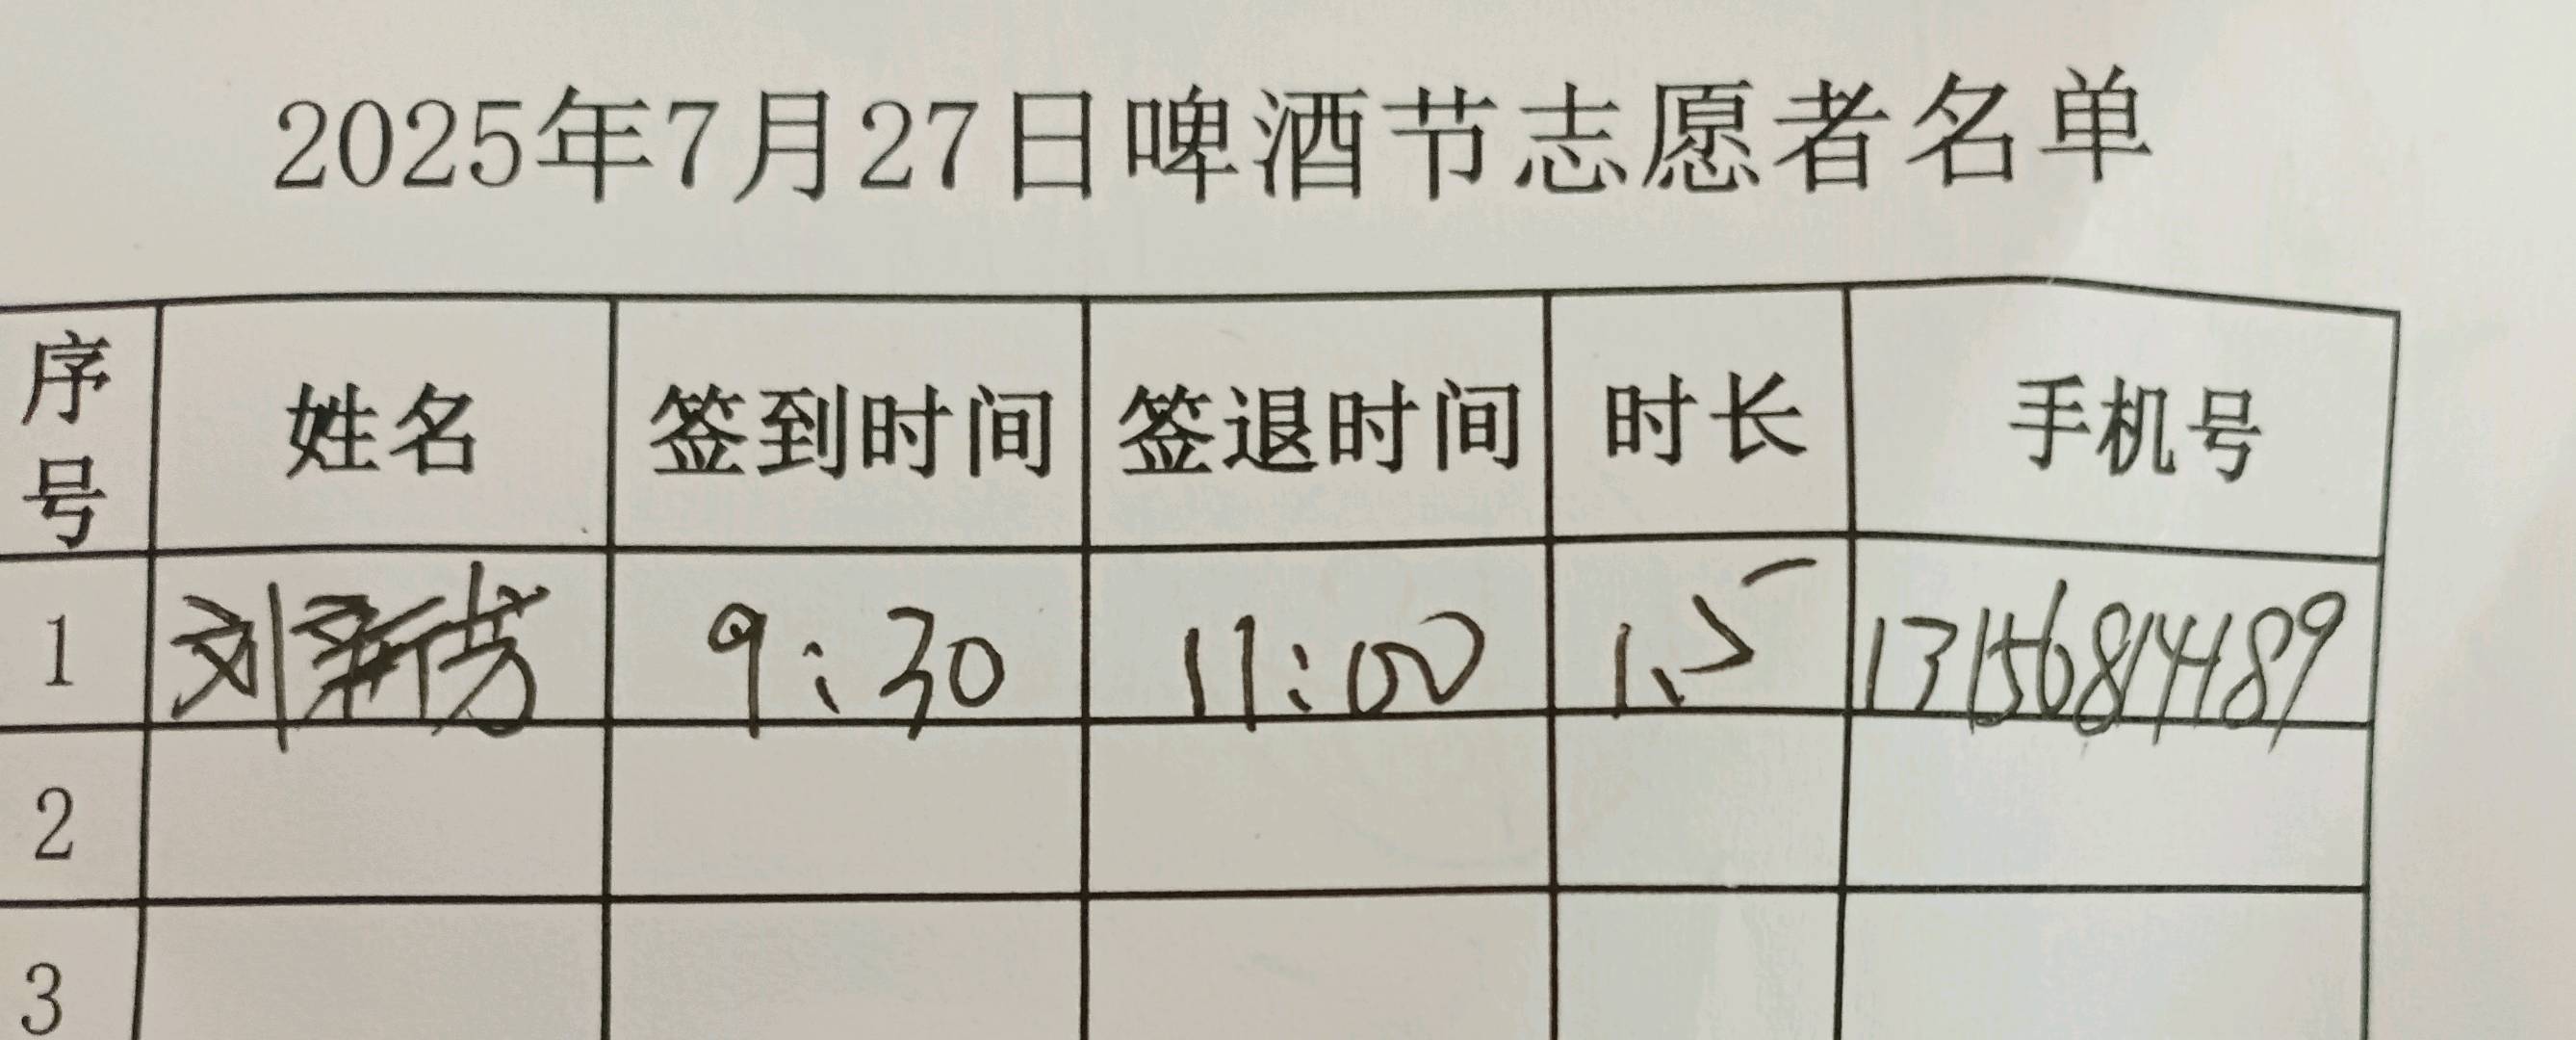 2025年7月27日啤酒节志愿者名单
序号 姓名 签到时间 签退时间 时长 手机号
1 刘新芳 9:30 11:00 1.5 13156814489
2
3